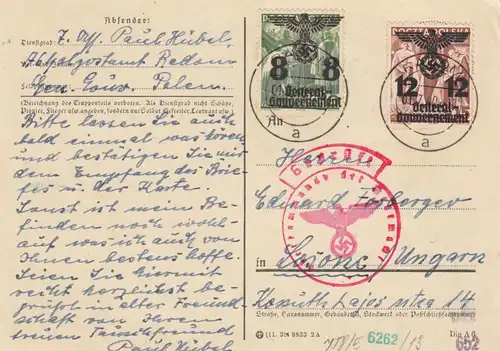 Absender:
Dienstgrad: Z. Off. Paul Hübel,
Radom
Gen. Gouv. Polen
(Bezeichnung des Truppenteils verboten. Als Dienstgrad nicht Schütze,
Flieger usw. angeben, sondern nur Soldat, Gefreiter, Leutnant usw.)
Bitte lassen Sie auch
bald einmal was hören
und bestätigen Sie mir
den Empfang des Brie-
fes u. der Karte.
Sonst ist mein Be-
finden noch wohl
auf was ich auch von
Ihnen bestens hoffe.
Seien Sie hiermit
recht herzlichst be-
grüsst in alter Freund-
schaft von Ihrem
treuen Tauschfreund
Paul Hübel
8 8
General-
Gouvernement
POCZTA POLSKA
12 12
General-
Gouvernement
An
a
a
Herrn
Eduard
Geprüft
Oberkommando der Wehrmacht
in Ungarn
Kossuth Lajos utca 14
Straße, Hausnummer, Gebäudeteil, Stockwerk oder Postschließfachnummer
(11. 39) 8833 2A
Din A 6
6262
/13
652